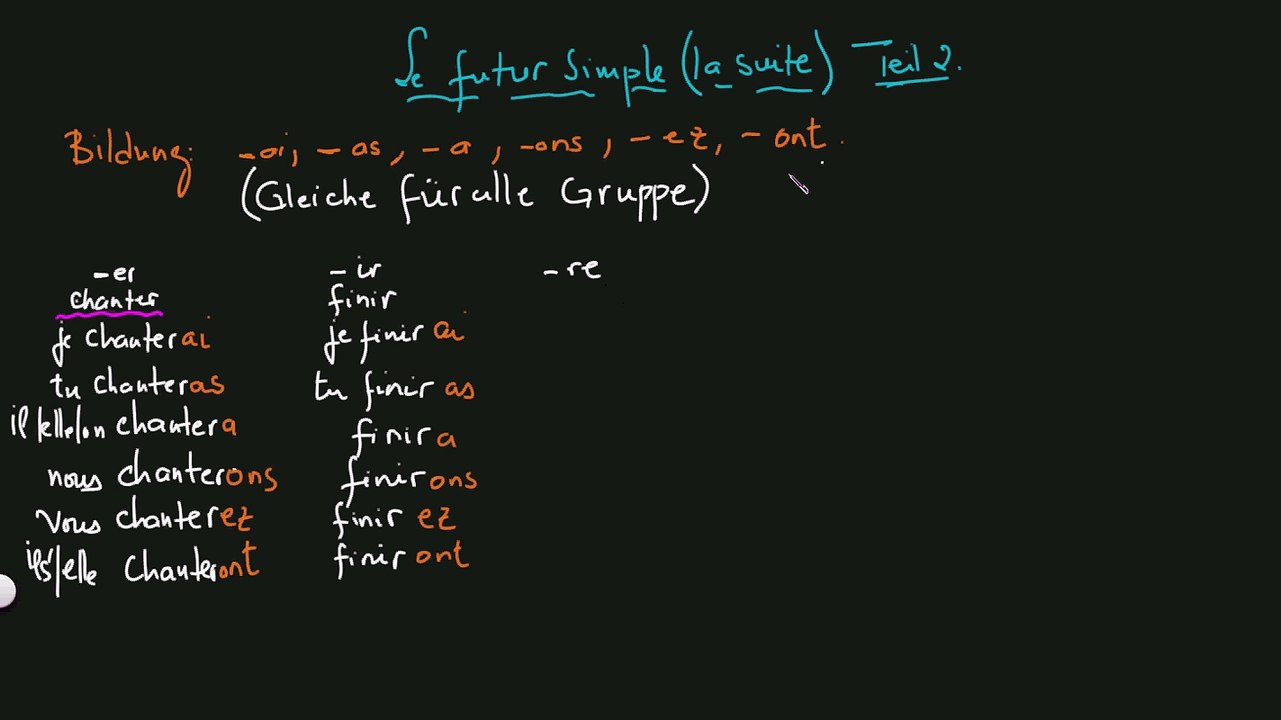 Le futur simple (la suite) Teil 2.
Bildung: -ai, -as, -a, -ons, -ez, -ont.
(Gleiche für alle Gruppe)
-er -ir -re
chanter finir
je chanterai je finirai
tu chanteras tu finiras
il/elle/on chantera finira
nous chanterons finirons
vous chanterez finirez
ils/elle chanteront finiront